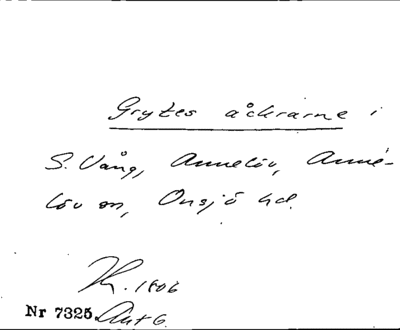 Grytes åckrarne i
S. Vång, Annelöv, Anne-
löv sn, Onsjö hd.
K. 1806
Nr 7325. Akt 6.